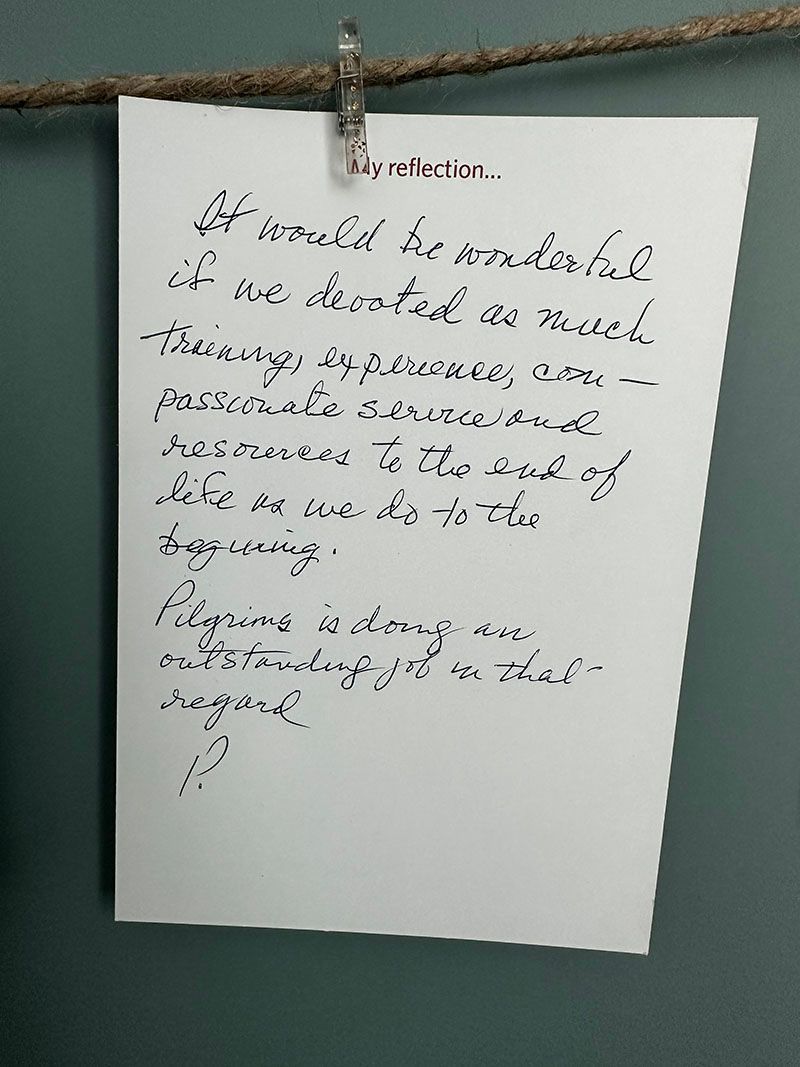 My reflection...
It would be wonderful
if we devoted as much
training, experience, com-
passionate service and
resources to the end of
life as we do to the
begining.
Pilgrims is doing an
outstanding job in that
regard
P.